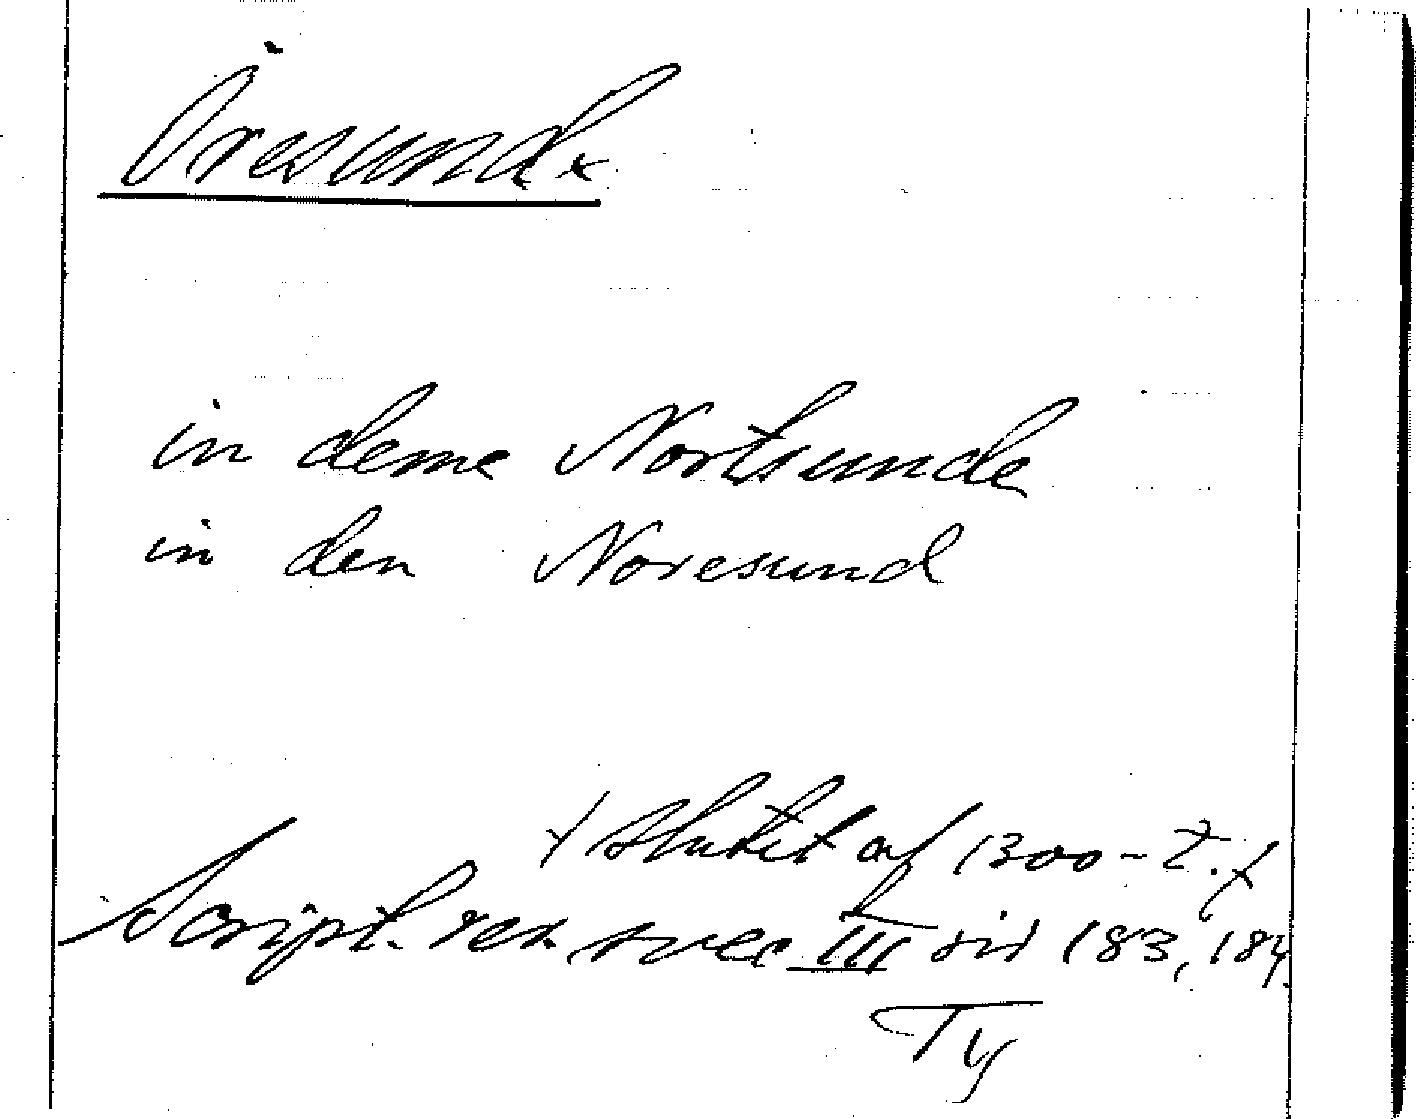 Öresund x
in deme Nortsunde
in den Noresund
x/ slutet af 1300-t. x
Script. rer. svec III sid 183, 184.
Ty